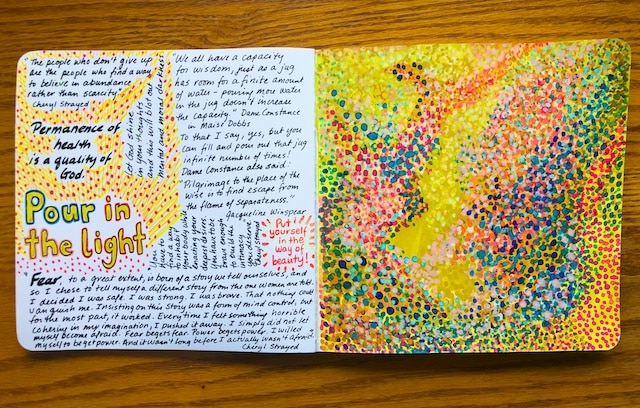 "The people who don't give up
are the people who find a way
to believe in abundance
rather than scarcity."
Cheryl Strayed
Permanence of
health
is a quality of
God.
Pour in
the light
Let God shine
in your thoughts
and this will blot out
mental and moral darkness!
"We all have a capacity
for wisdom, just as a jug
has room for a finite amount
of water - pouring more water
in the jug doesn't increase
the capacity." Dame Constance
in Maisie Dobbs
To that I say, yes, but you
can fill and pour out that jug
infinite number of times!
Dame Constance also said:
"Pilgrimage to the place of the
wise is to find escape from
the flame of separateness."
Jacqueline Winspear
You have to
find a way
to inhabit
your body while
enacting your
deepest desires.
You have to be
brave enough
to build the
intimacy
you deserve.
Cheryl Strayed
Put
yourself
in the
way of
beauty!
Fear to a great extent, is born of a story we tell ourselves, and
so I chose to tell myself a different story from the one women are told.
I decided I was safe. I was strong. I was brave. That nothing could
vanquish me. Insisting on this story was a form of mind control, but
for the most part, it worked. Every time I felt something horrible
cohering in my imagination, I pushed it away. I simply did not let
myself become afraid. Fear begets fear. Power begets power. I willed
myself to beget power. And it wasn't long before I actually wasn't afraid.
Cheryl Strayed